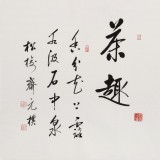 茶趣
香分花上露
水汲石中泉
松樹齋元撲